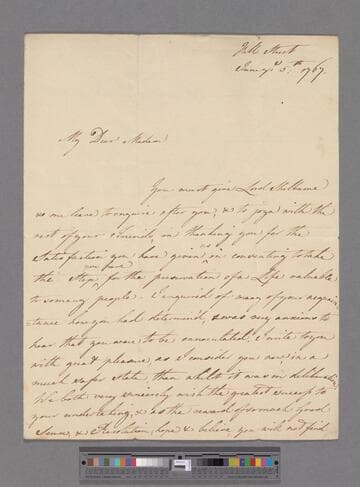 Hill Street
June ye 5th 1767.
My Dear Madam
You must give Lord Shelburne
& me leave to enquire after you, & to joyn with the
rest of your Friends, in thanking you for the
Satisfaction you have given us in consenting to take
the Steps you have for the preservation of a Life valuable
to so many people. I enquired of many of your acquain
tance how you had determined, & was very anxious to
hear that you were to be innoculated. I write to you
with great pleasure, as I consider you now in a
much safer State, than whilst it was in deliberation
We both very sincerely wish the greatest success to
your undertaking, & as the reward of so much good
Sense, & Resolution, hope & believe you will not find